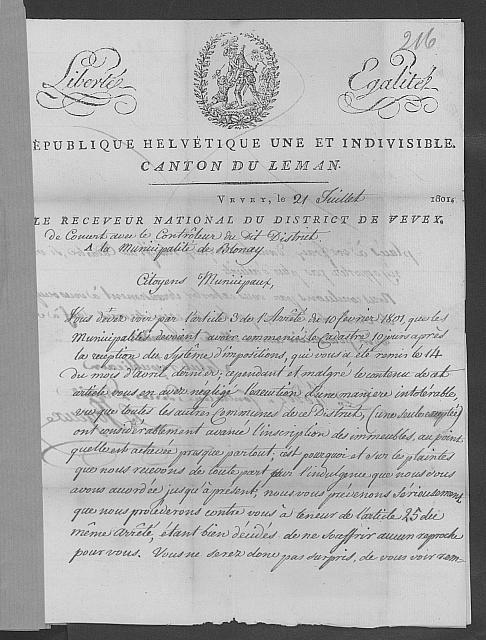 216
Liberté, Egalité,
RÉPUBLIQUE HELVÉTIQUE UNE ET INDIVISIBLE.
CANTON DU LEMAN.
VEVEY, le 21 Juillet 1801.
LE RECEVEUR NATIONAL DU DISTRICT DE VEVEY,
de Concert avec le Contrôleur du Dit District.
A la Municipalité de Blonay
Citoyens Municipaux,
Vous devez voir par l'article 3 de l'Arrêté du 10 fevrier 1801, que les
Municipalités devaient avoir commencé le Cadastre 10 jours après
la réception du Systême d'impositions, qui vous a été remis le 14
du mois d'Avril dernier, cependant et malgré le contenu de cet
article vous en avez négligé l'execution d'une manière intolérable,
vu que toutes les autres Communes de ce District, (une seule exceptée)
ont considérablement avancé l'inscription des immeubles, au point
qu'elle est achevée presque partout, c'est pourquoi et sur les plaintes
que nous recevons de toute part sur l'indulgence que nous vous
avons accordée jusqu'à présent, nous vous prévenons Sérieusement
que nous procéderons contre vous à teneur de l'article 25 du
même Arrêté, étant bien décidés de ne souffrir aucun reproche
pour vous. Vous ne serez donc pas surpris, de vous voir rem-